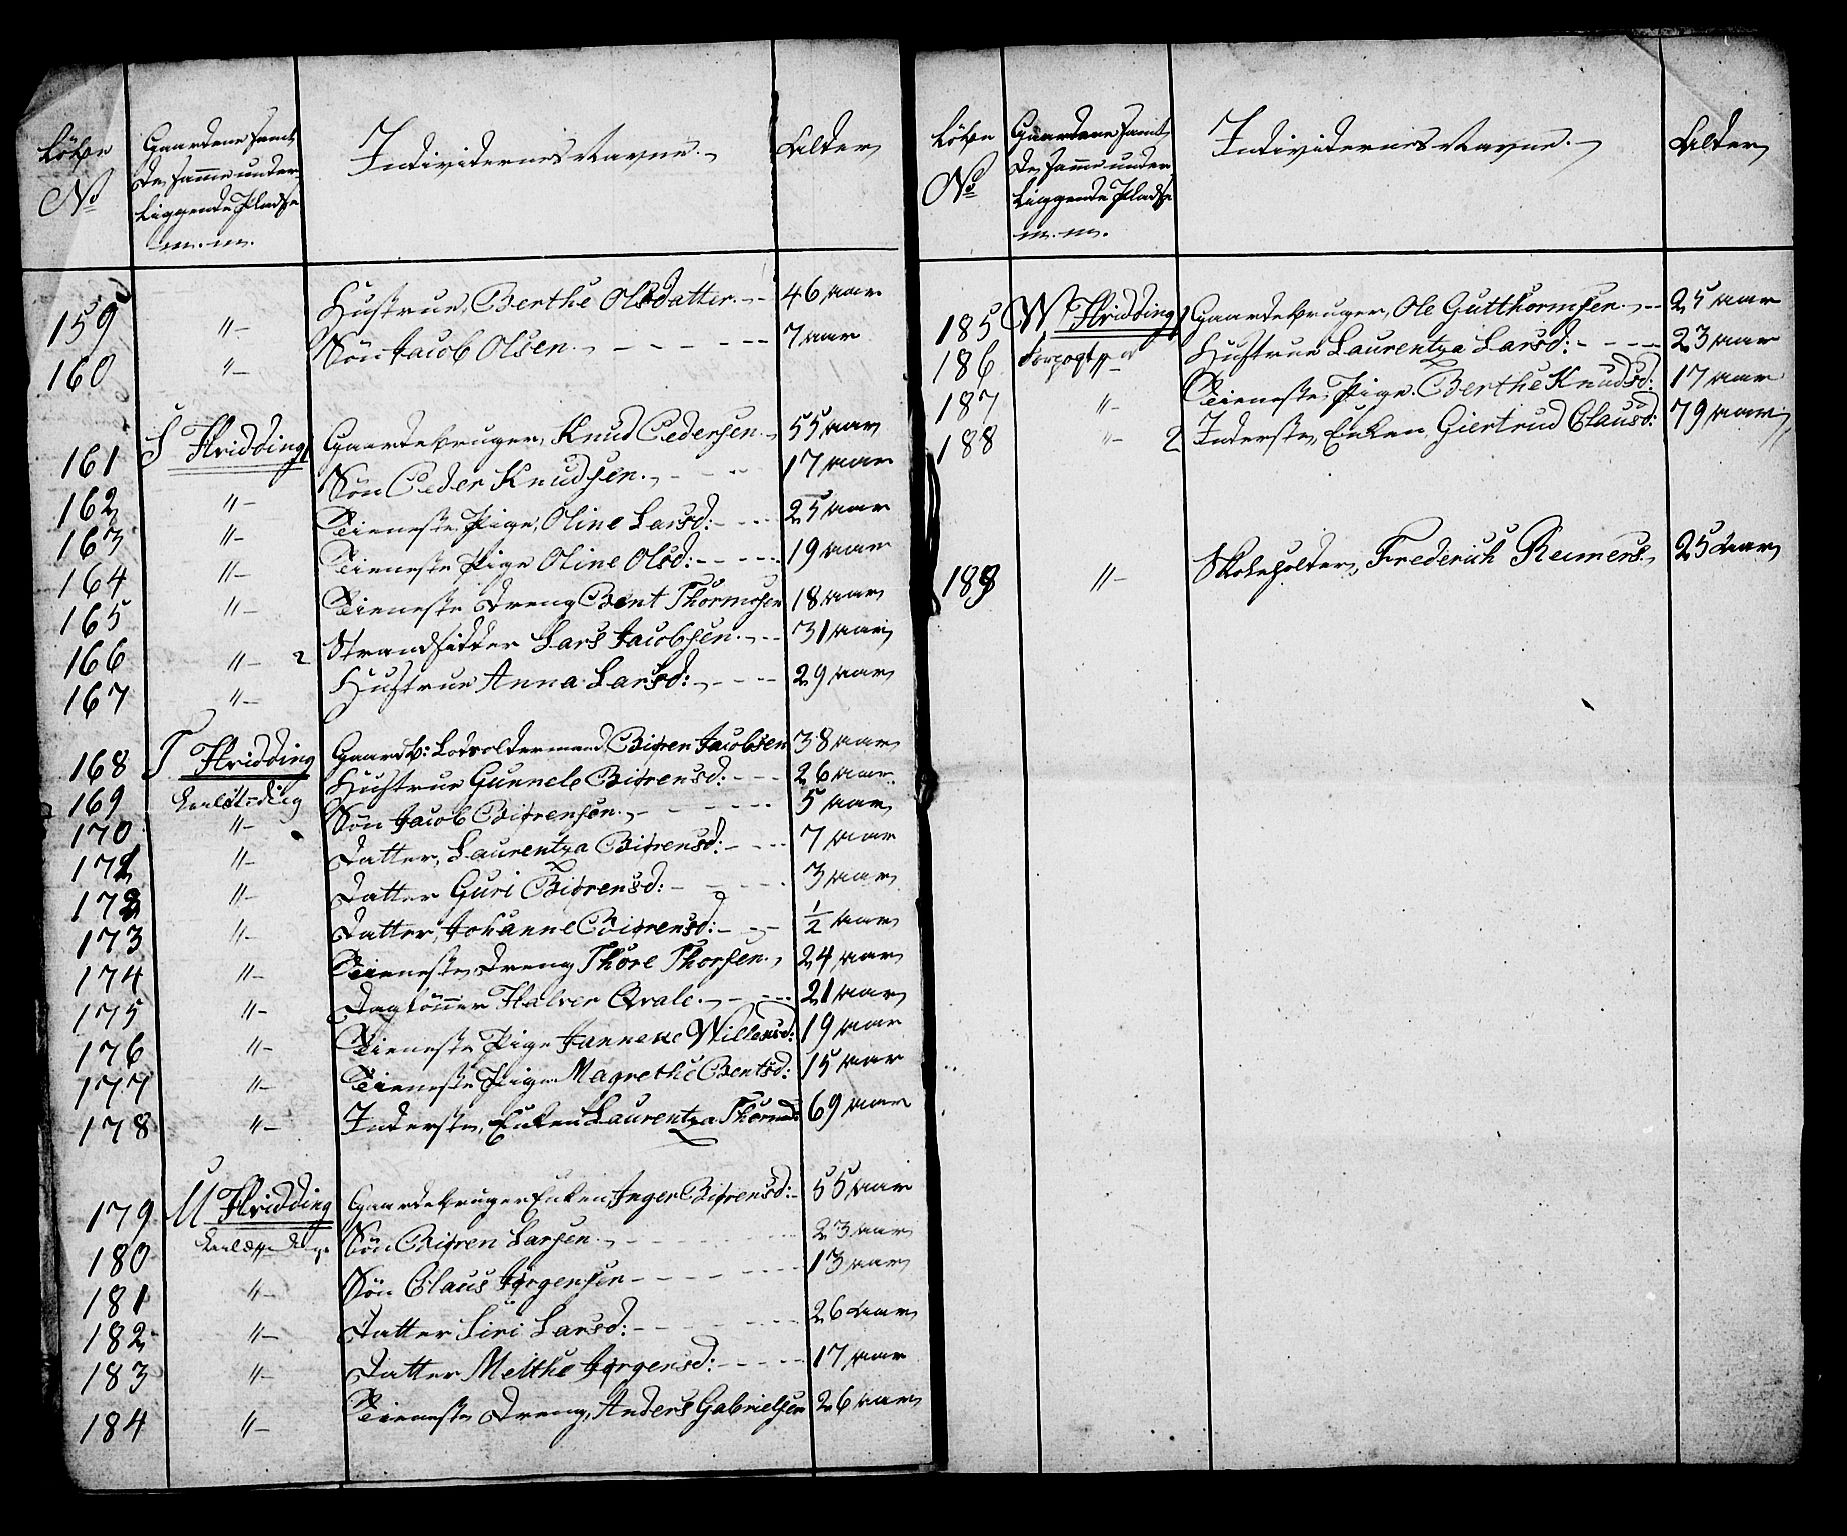 Løbe
No
Gaardene samt
de samme under-
liggende Pladse
m. m.
Individernes Navne.
Alder
159 "- Hustrue, Berthe Olsdatter. - - 46 aar
160 "- Søn Jacob Olsen. - - - - 7 aar
161 S Hridding 1 Gaardebruger, Knud Pedersen. 55 aar
162 "- Søn Peder Knudsen. - - - 17 aar
163 "- Tieneste Pige, Oline Larsd: - - - 25 aar
164 "- Tieneste Pige Oline Olsd: - - - 19 aar
165 "- Tieneste Dreng Bent Thormosen 18 aar
166 "- 2 Strandsidder Lars Jacobsen. - - 31 aar
167 "- Hustrue Anna Larsd: - - - 29 aar
168 T Hridding Gaardb: Lodsoldermand Biøren Jacobsen 38 aar
169 Hustrue Gunnele Biørensd: - - - 26 aar
170 "- Søn Jacob Biørensøn. - - - - 5 aar
171 "- Datter, Laurentza Biørensd: - - - 7 aar
172 "- Datter Guri Biørensd: - - - 3 aar
173 "- Datter, Johanne Biørensd: - - - 1/2 aar
174 "- Tieneste Dreng Thore Thorsen. 24 aar
175 "- Dagløner Halver Qvale. - - - 21 aar
176 "- Tieneste Pige Janneke Willumsd: 19 aar
177 "- Tieneste Pige Magrethe Bentsd: 15 aar
178 "- Inderste, Enken Laurentza Thormds 69 aar
179 M Hridding Gaardebruger Enken, Inger Biørensd: - 55 aar
180 Søn Biøren Larsen. - - - 23 aar
181 "- Søn Claus Jørgensen - - - - 13 aar
182 "- Datter Siri Larsd: - - - - 26 aar
183 "- Datter Melthe Jørgensd: - - - - 17 aar
184 "- Tieneste Dreng, Anders Gabrielsen 26 aar
Løbe
No
Gaardene samt
de samme under-
liggende Pladse
m. m.
Individernes Navne.
Alder
185 W Hridding 1 Gaardebruger, Ole Gutthormsen. - - 25 aar
186 "- Hustrue Laurentza Larsd: - - - - 23 aar
187 "- Tieneste Pige. Berthe Knudsd: 17 aar
188 "- 2 Inderste, Enken, Giertrud Clausd: 79 aar
189 "- Skoleholder, Frederich Reimers. 25 aar